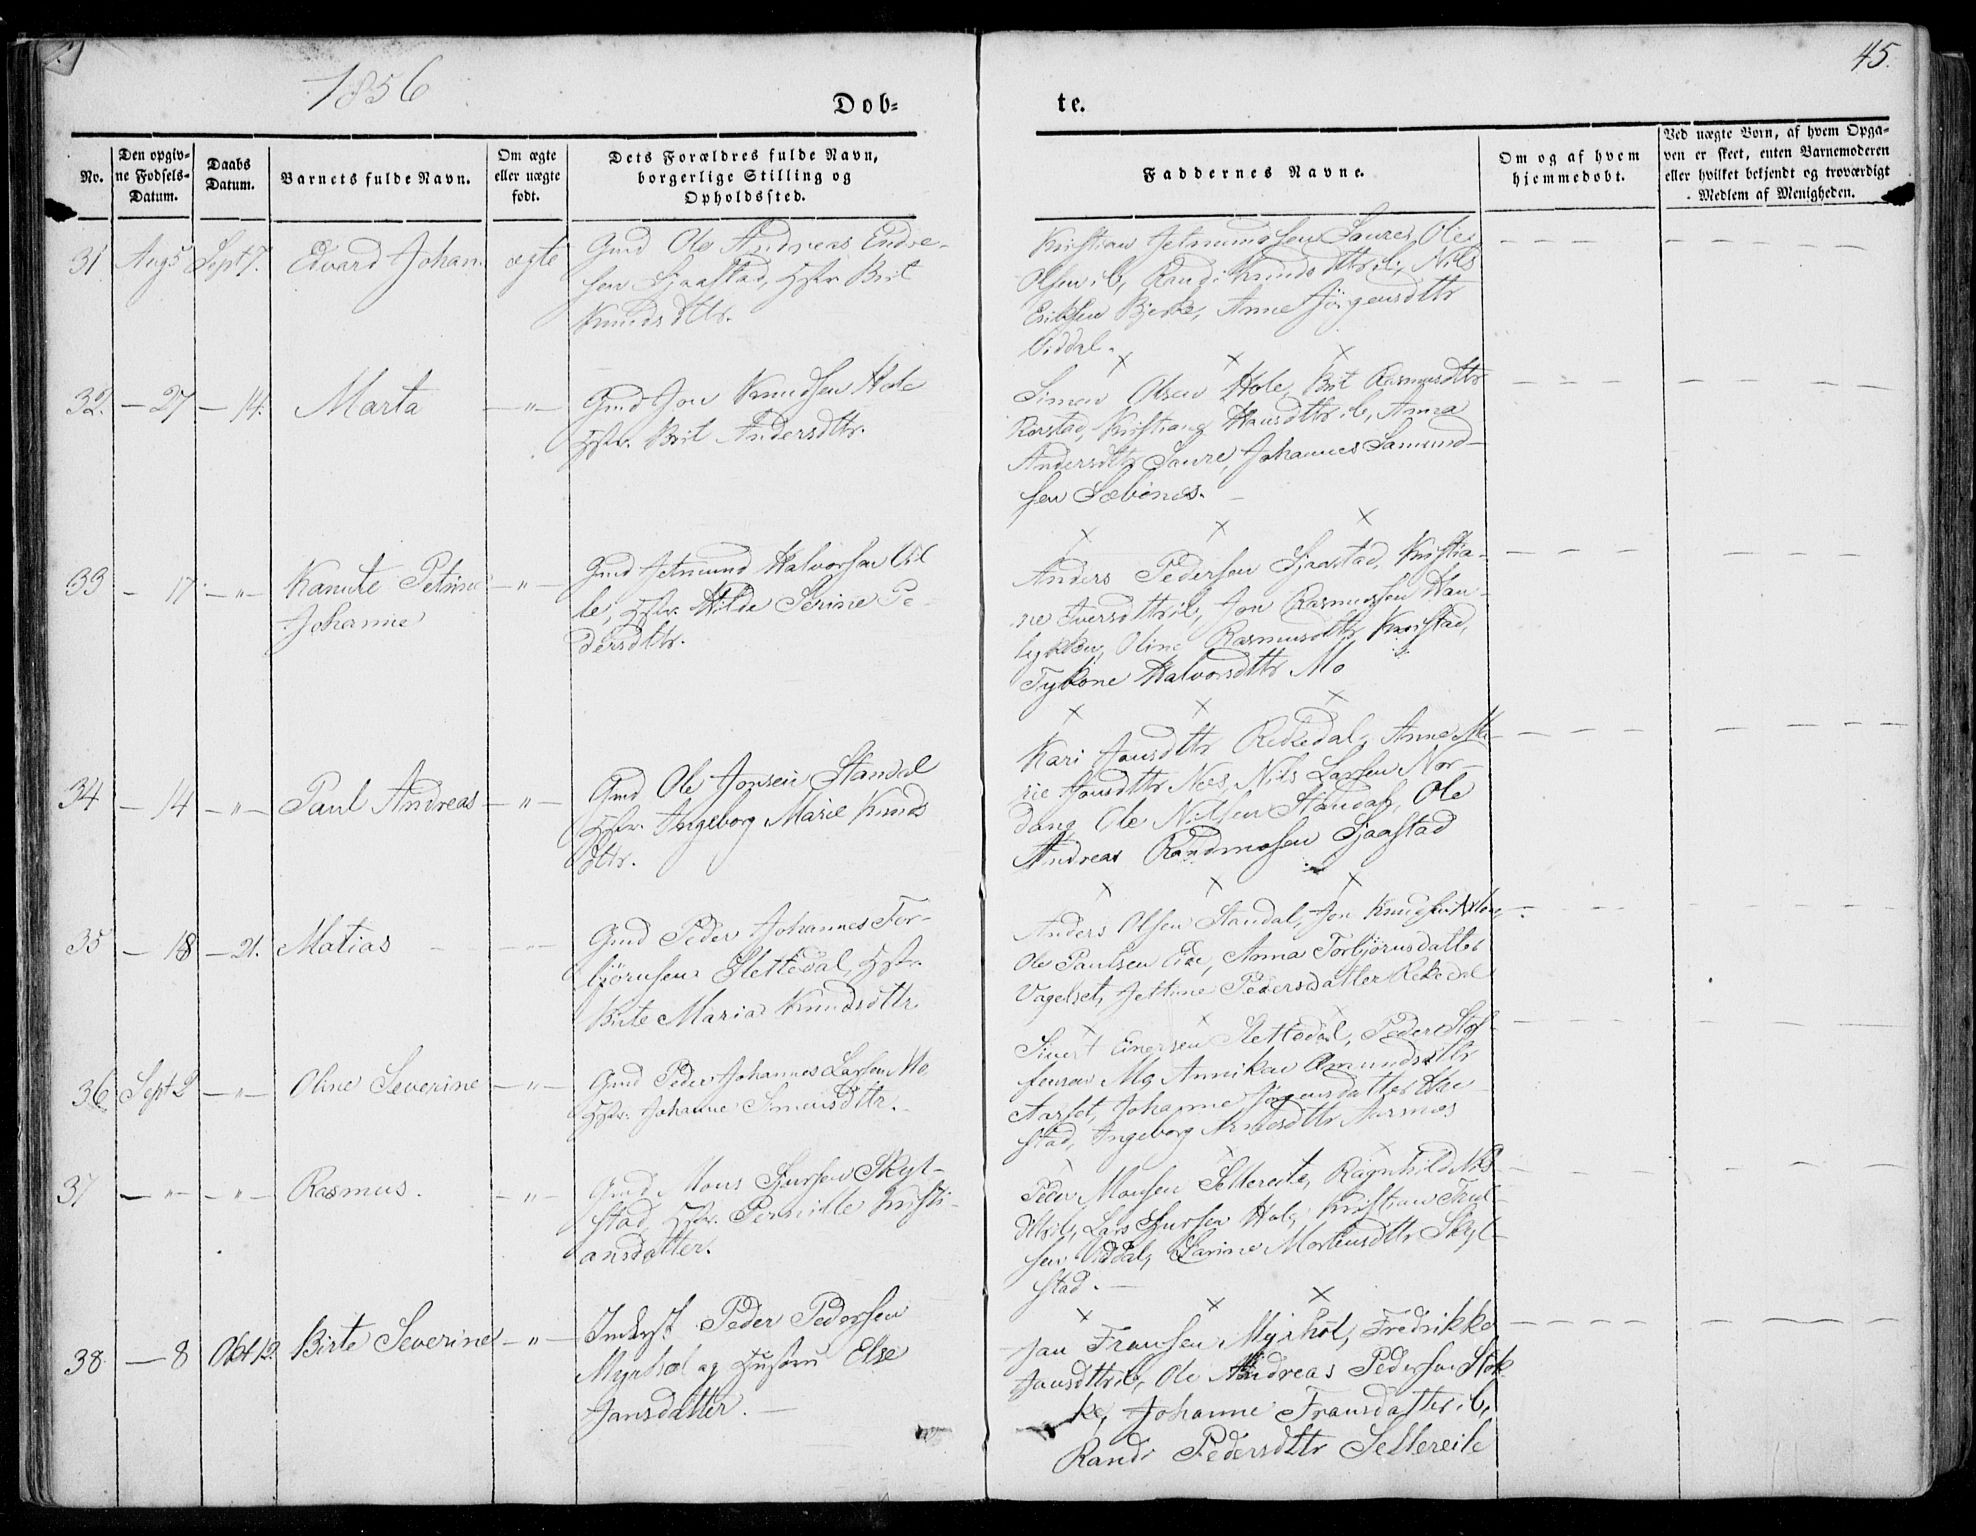 1856
45.
Dob=
te.
No.
Den opgiv-
ne Fødsels-
Datum.
Daabs
Datum.
Barnets fulde Navn.
Om ægte
eller uægte
født.
Dets Forældres fulde Navn,
borgerlige Stilling og
Opholdssted.
Faddernes Navne.
Om og af hvem
hjemmedøbt.
Ved uægte Børn, af hvem Opga-
ven er skeet, enten Barnemoderen
eller hvilket bekjendt og troværdigt
Medlem af Menigheden.
31 Aug 5 Sept 7. Edvard Johan ægte
Gmd Ole Andreas Endre-
sen Sjaastad, Hstr. Brit
Knudsdttr.
Kristian Jetmundsen Saure, Ole
Olsen ib, Randi Knudsdttr ib, Nils
Eriksen Bjerke, Anne Jörgensdttr
Viddal.
32. — 27 — 14. Marta —"—
Gmd Jon Knudsen Hole
Hstr. Brit Andersdttr.
Simen Olsen Hole, Brit Rasmusdttr
Rorstad, Kristiane Hansdttr ib, Anna
Andersdttr Saure, Johannes Samund-
sen Sæbönes.
33 — 17 —"— Kanute Petrine —"—
Johanne
Gmd Jetmund Halvorsen
le, Hstr. Hilde Serine Pe-
dersdttr.
Anders Pedersen Sjaastad, Kristia-
ne Iversdttr ib, Jon Rasmussen Hau-
lykken, Oline Rasmusdttr
Halvorsdttr Mo
34 — 14 —"— Paul Andreas —"—
Gmd Ole Jonsen Standal
Hstr. Ingeborg Marie Knuds
dttr.
Kari Jonsdttr Rekedal, Anne Ma-
rie Jonsdttr Nes, Nils Larsen Nor-
dang, Ole Nilsen Standal, Ole
Andreas Sjaastad
35 — 18 — 21. Matias
Gmd Peder Johannes Tor-
björnsen Slettedal, Hstr.
Birte Maria Knudsdttr
Anders Olsen Standal, Jon Knudsen
Ole Paulsen Eie, Anna Torbjörnsdatter
Vagelset, Jettine Pedersdatter Rekedal
36 Sept 2 —"— Oline Severine —"—
Gmd Peder Johannes Larsen Mo,
Hstr. Johanne Simensdttr.
Sivert Einersen Slettedal, Peder Stef-
fensen Mo, Annikan Amundsdttr
Aarset, Johanne Jörgensdatter
stad, Ingeborg Aursnes
37 —"— —"— Rasmus. —"—
Gmd Mons Sjursen Skyl-
stad, Hstr. Pernille Kristi-
ansdatter.
Peder Monsen Sellereite, Ragnhild Nils
dttr ib, Lars Sjursen Hole, Kristian
sen Viddal, Karine Mortensdttr Skyl-
stad.
38. — 8 Okt 12. Birte Severine —"—
Indhyst. Peder Pedersen
Myrhol og Hustru Else
Jansdatter.
Jan Fransen Myrhol, Fredrikke
Jansdttr ib, Ole Andreas Pedersen Stok-
ke, Johanne Fransdatter ib,
Randi Pedersdttr Sellereite